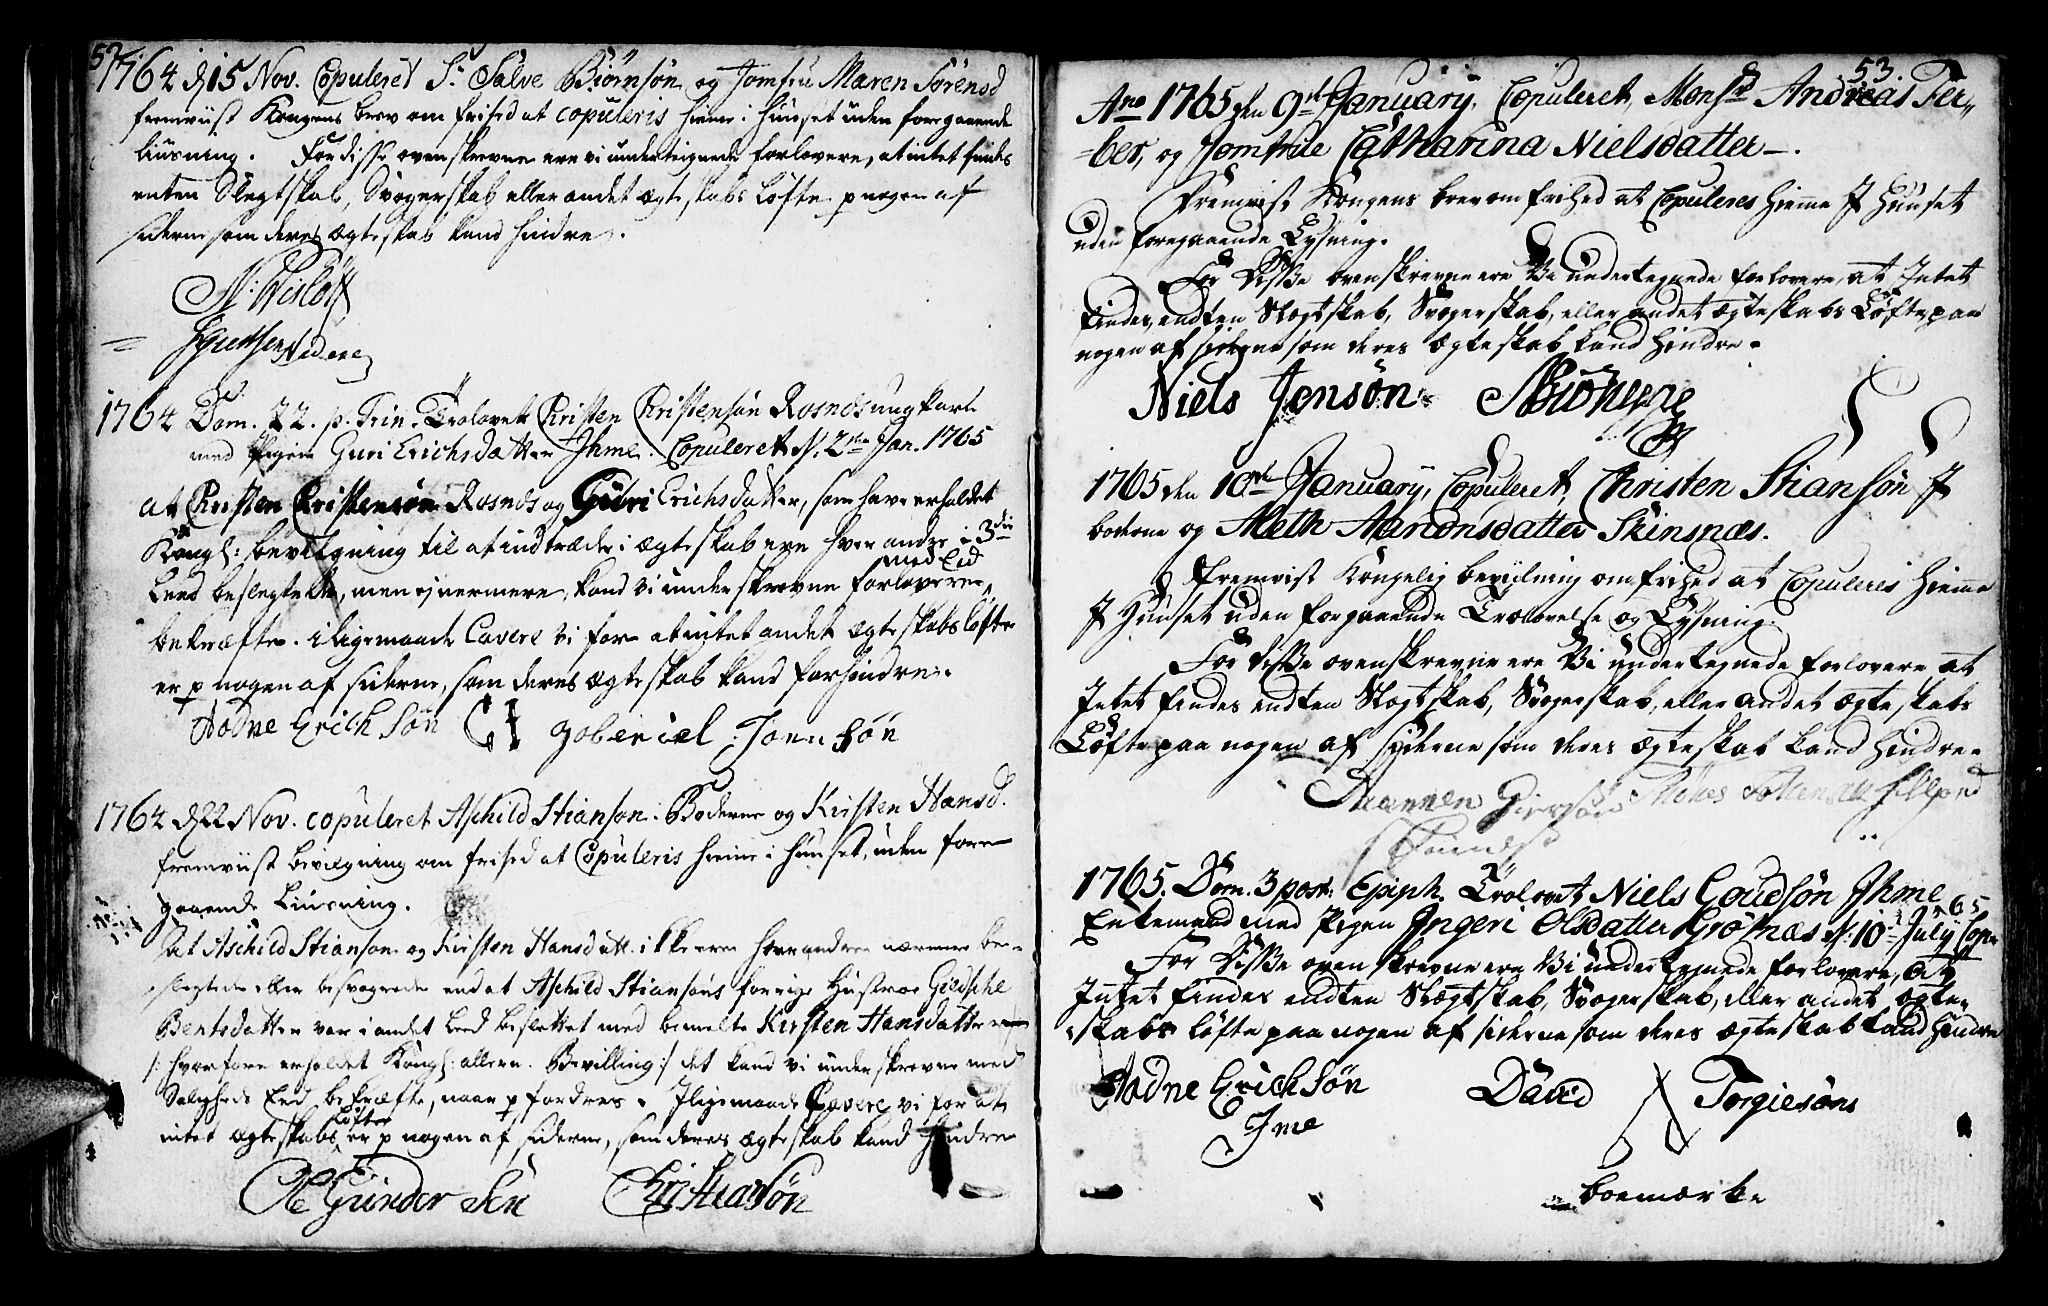 52.
1764 d 15 Nov. Copuleret Sr Salve Biörnsön og Jomfru Maren Sörensd
fremviist Kongens brev om frihed at copuleris hiemme i Huuset uden foregaaende
liusning. For disse ovenskrevne ere vi undertegnede forlovere, at intet findes
enten Slegtskab, Svogerskab eller andet ægteskabs Løfte p nogen af
siderne som deres ægteskab kand hindre.
1764 Dom. 22. p. Trin. Trolovet Christen Christensön Rosnæs ungkarl
med Pigen Guri Erichsdatter Ihme. Copuleret d. 2den Jan. 1765
at Christen Christensön Rosnæs og Guri Erichsdatter, som have erholdet
Kongl: bevilgning til at indtræde i ægteskab ere hver andre i 3die
med Eed
Leed beslegtede, men ej nermere, kand vi underskrevne forlovere
bekræfte. iligemaade Cavere vi for at intet andet ægteskabs løfte
er p nogen af siderne, som deres ægteskab kand forhindre.
Aadne Erich Sön gaberiel Jonn sön
1764 d 22 Nov. copuleret Aschild Stianson Boderne og Kirsten Hansd.
fremviist bevilgning om frihed at Copuleris hieme i huuset, uden fore
gaaende Liusning.
At Aschild Stianson og Kirsten Hansdatt. ikke ere hver andre nærmere be-
slegtede eller besvogrede end at Aschild Stiansøns forrige Hustroe
Bentsdatter var i andet Leed beslegtet med bemelte Kirsten Hansdatter
/: hvorfore erholdet Kongl: allern. Bevilling :/ det kand vi underskrevne med
Saligheds Eed bekræfte, naar p fordres. Iligemaade Cavere vi for at
løfte
intet ægteskabs er p nogen af siderne, som deres ægteskab kand hindre
Ole Gunder Sen Christian Sön
53.
Ano 1765 den 9de January, Copuleret, Monsr Andreas Fer-
ber, og Jomfrue Catharina Nielsdatter.
Fremvist Kongens brev om frihed at Copuleres hieme I Huuset
uden foregaaende Lysning.
For Disse ovenskrevne ere Vi undertegnede forlovere, at Intet
findes, endten Slegtskab, Svogerskab, eller andet ægteskabs Løfte paa
nogen af siderne som deres Ægteskab kand hindre.
Niels Jensön
1765 den 10de January, Copuleret, Christen Stiansøn I
boderne og Aleth Aanonsdatter Skinsnæs.
Fremvist Kongelig bevilning om frihed at Copuleres hieme
I Huuset uden forgaaende Trolovelse og Lysning.
For Disse ovenskrevne ere Vi undertegnede forlovere at
Intet findes endten Slegtskab, Svogerskab, eller andet ægteskabs
Løfte paa nogen af siderne som deres ægteskab kand hindre.
1765. Dom. 3 post. Epiph. Trolovet Niels Goudsön Ihme
Enkemand med Pigen Ingeri Olsdatter Grötnæs d. 10de July 1765 Copu
For Disse ovenskrevne ere Vi undertegnede forlovere, at
Intet findes endten Slegtskab, Svogerskab, eller andet ægte
skabs løfte paa nogen af siderne som deres ægteskab kand hindre
Aadne Erich Sön David Torgiesöns
Ime
boemærke